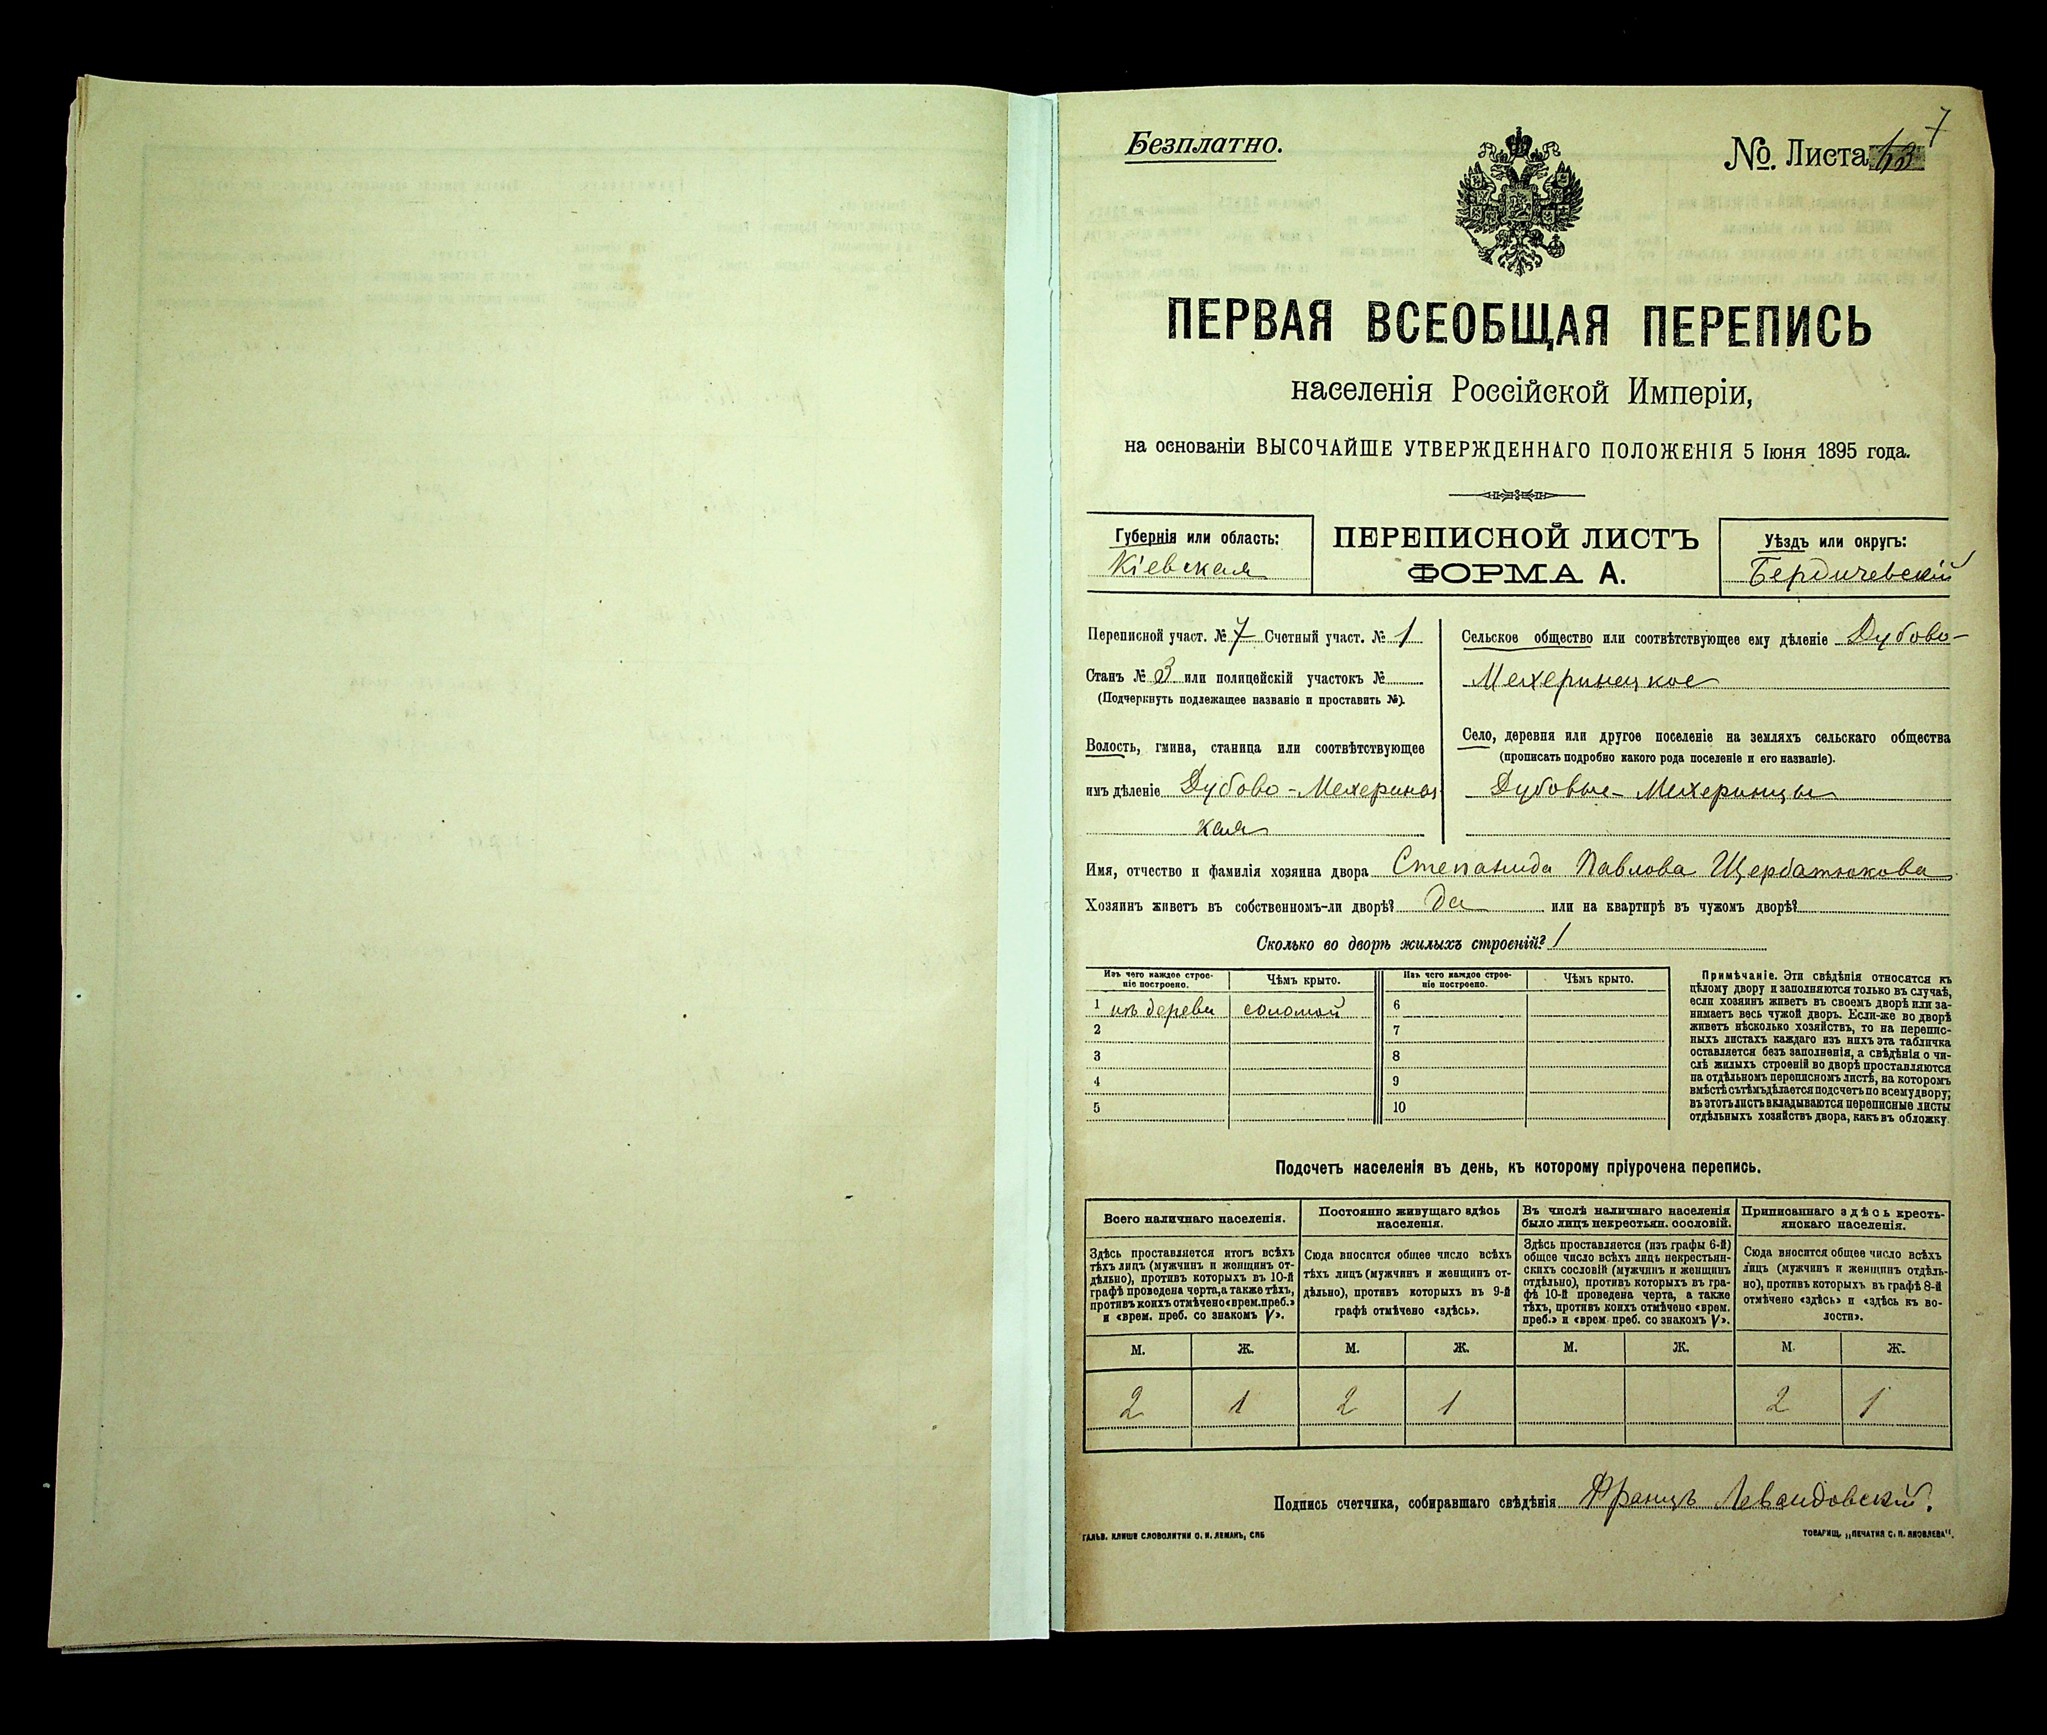 7
Безплатно.
№ Листа 13
ПЕРВАЯ ВСЕОБЩАЯ ПЕРЕПИСЬ
населенія Россійской Имперіи,
на основаніи ВЫСОЧАЙШЕ УТВЕРЖДЕННАГО ПОЛОЖЕНІЯ 5 Іюня 1895 года.
Губернія или область:
Кіевская
ПЕРЕПИСНОЙ ЛИСТЪ
ФОРМА А.
Уѣздъ или округъ:
Бердичевскій
Переписной участ. № 7 Счетный участ. № 1
Станъ № 3 или полицейскій участокъ №
(Подчеркнуть подлежащее названіе и проставить №).
Волость, гмина, станица или соотвѣтствующее
имъ дѣленіе Дубово-Мехеринец
кая
Сельское общество или соотвѣтствующее ему дѣленіе Дубово-
Мехеринецкое
Село, деревня или другое поселеніе на земляхъ сельскаго общества
(прописать подробно какого рода поселеніе и его названіе).
Дубовые-Мехеринцы
Имя, отчество и фамилія хозяина двора Степанида Павлова Щербатюкова
Хозяинъ живетъ въ собственномъ-ли дворѣ? да или на квартирѣ въ чужомъ дворѣ?
Сколько во дворѣ жилыхъ строеній? 1
Изъ чего каждое строе-
ніе построено.
Чѣмъ крыто.
Изъ чего каждое строе-
ніе построено.
Чѣмъ крыто.
1 изъ дерева соломой 6
2 7
3 8
4 9
5 10
Примѣчаніе. Эти свѣдѣнія относятся къ
цѣлому двору и заполняются только въ случаѣ,
если хозяинъ живетъ въ своемъ дворѣ или за-
нимаетъ весь чужой дворъ. Если-же во дворѣ
живетъ нѣсколько хозяйствъ, то на перепис-
ныхъ листахъ каждаго изъ нихъ эта табличка
оставляется безъ заполненія, а свѣдѣнія о чи-
слѣ жилыхъ строеній во дворѣ проставляются
на отдѣльномъ переписномъ листѣ, на которомъ
вмѣстѣ съ тѣмъ дѣлается подсчетъ по всему двору;
въ этотъ листъ вкладываются переписные листы
отдѣльныхъ хозяйствъ двора, какъ въ обложку.
Подсчетъ населенія въ день, къ которому пріурочена перепись.
Всего наличнаго населенія.
Здѣсь проставляется итогъ всѣхъ
тѣхъ лицъ (мужчинъ и женщинъ от-
дѣльно), противъ которыхъ въ 10-й
графѣ проведена черта, а также тѣхъ,
противъ коихъ отмѣчено «врем. преб.»
и «врем. преб. со знакомъ V».
Постоянно живущаго здѣсь
населенія.
Сюда вносится общее число всѣхъ
тѣхъ лицъ (мужчинъ и женщинъ от-
дѣльно), противъ которыхъ въ 9-й
графѣ отмѣчено «здѣсь».
Въ числѣ наличнаго населенія
было лицъ некрестьян. сословій.
Здѣсь проставляется (изъ графы 6-й)
общее число всѣхъ лицъ некрестьян-
скихъ сословій (мужчинъ и женщинъ
отдѣльно), противъ которыхъ въ гра-
фѣ 10-й проведена черта, а также
тѣхъ, противъ коихъ отмѣчено «врем.
преб.» и «врем. преб. со знакомъ V».
Приписаннаго здѣсь кресть-
янскаго населенія.
Сюда вносится общее число всѣхъ
лицъ (мужчинъ и женщинъ отдѣль-
но), противъ которыхъ въ графѣ 8-й
отмѣчено «здѣсь» и «здѣсь къ во-
лости».
М. Ж. М. Ж. М. Ж. М. Ж.
2 1 2 1 2 1
Подпись счетчика, собиравшаго свѣдѣнія Францъ Левандовскій.
ГАЛЬВ. КЛИШЕ СЛОВОЛИТНИ О. И. ЛЕМАНЪ, СПБ
ТОВАРИЩ. „ПЕЧАТНЯ С. П. ЯКОВЛЕВА".